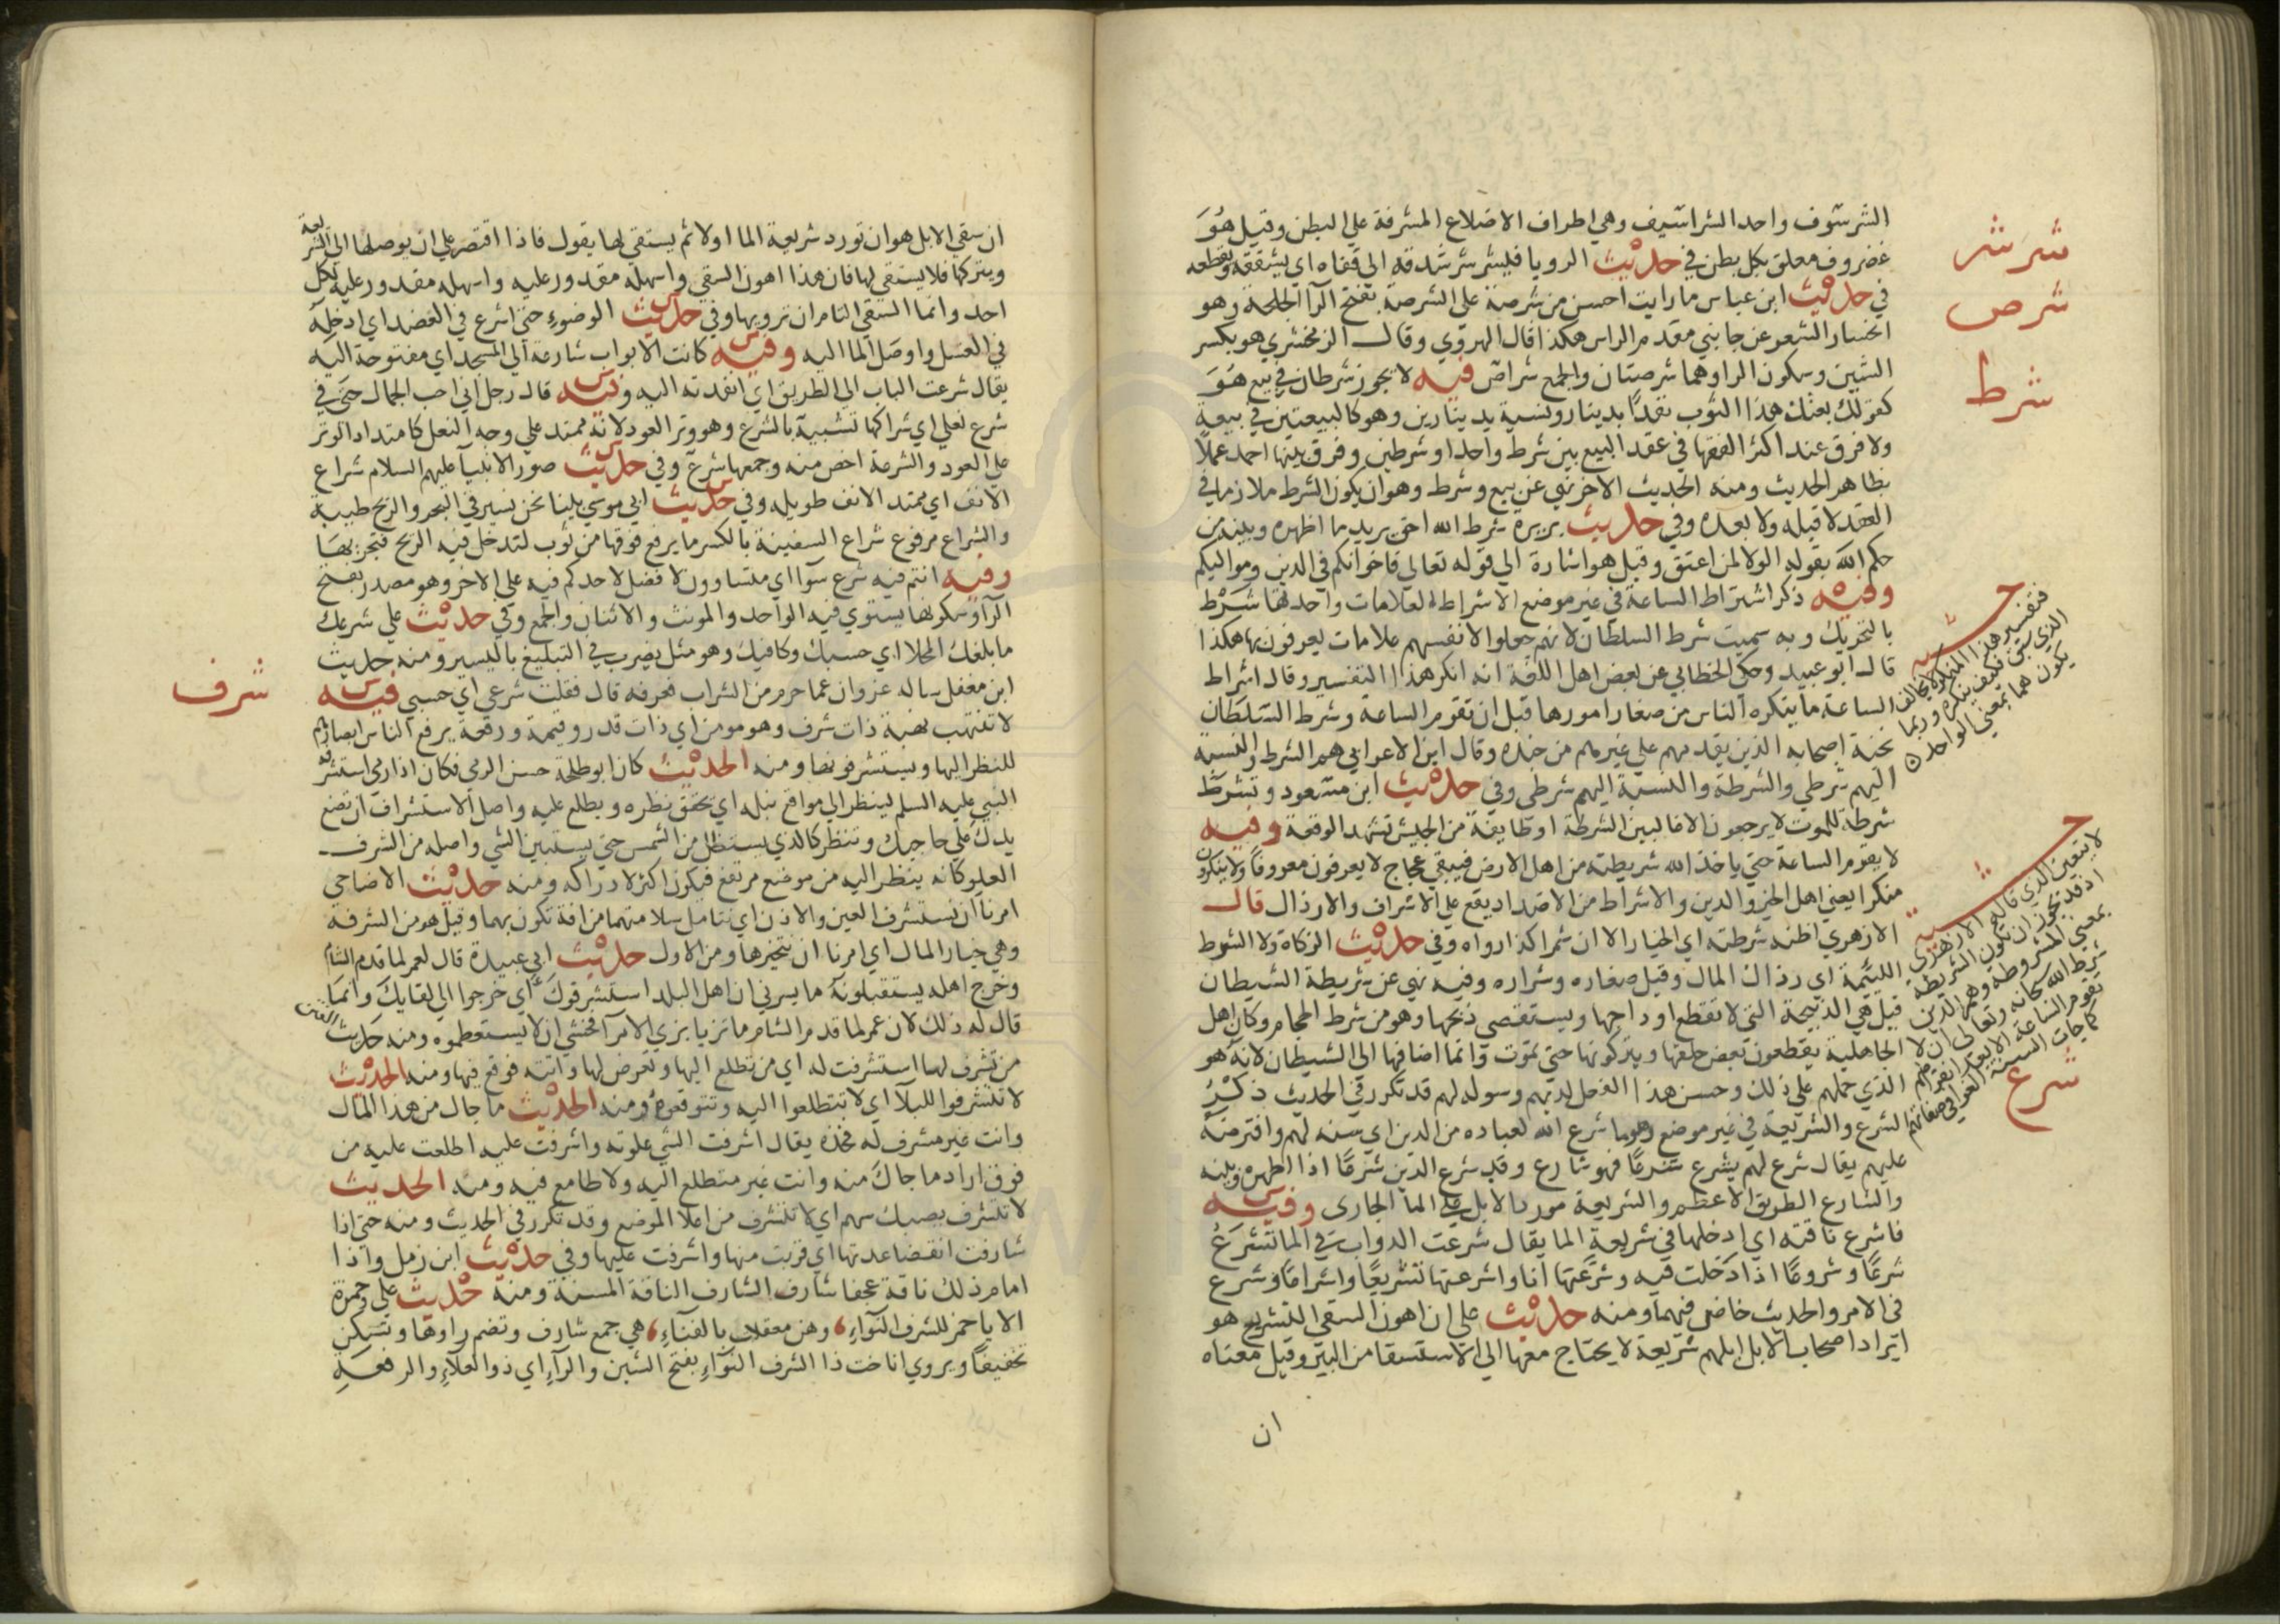 الشرسوف واحد الشراسيف وهي اطراف الاضلاع المشرفة علي البطن وقيل هو
شرشر
غضروف معلق بكل بطن في حديث الرويا فيشرشر شدقه الي قفاه اي يشققه ويقطعه
شرص
في حديث ابن عباس ما رايت احسن من شرصة علي الشرصة بفتح الرا الجلحة وهو
انحسار الشعر عن جانبي مقدم الراس هكذا قال الهروي وقال الزمخشري هو بكسر
شرط
الشين وسكون الرا وهما شرصتان والجمع شراص فيه لا يجوز شرطان في بيع هو
كقولك بعتك هذا الثوب نقدا بدينار ونسية بدينارين وهو كالبيعتين في بيعة
ولا فرق عند اكثر الفقها في عقد البيع بين شرط واحد او شرطين وفرق بينها احمد عملا
بظاهر الحديث ومنه الحديث الاخر نهي عن بيع وشرط وهو ان يكون الشرط ملازما في
العقد لا قبله ولا بعده وفي حديث بريرة شرط الله احق يريد ما اظهره وبينه من
حكم الله بقوله الولا لمن اعتق وقيل هو اشارة الي قوله تعالي فاخوانكم في الدين ومواليكم
وفيه ذكر اشتراط الساعة في غير موضع الاشراط العلامات واحدتها شرط
بالتحريك وبه سميت شرط السلطان لانهم جعلوا لانفسهم علامات يعرفون بها هكذا
قال ابو عبيد وحكي الخطابي عن بعض اهل اللغة انه انكر هذا التفسير وقال اشراط
الساعة ما ينكره الناس من صغار امورها قبل ان تقوم الساعة وشرط السلطان
نخبة اصحابه الذين يقدمهم علي غيرهم من جنده وقال ابن الاعرابي هم الشرط والنسبة
اليهم شرطي والشرطة والنسبة اليهم شرطي وفي حديث ابن مسعود وتشرط
شرطة للموت لا يرجعون الا غالبين الشرطة او طايفة من الجيش تشهد الوقعة وفيه
لا تقوم الساعة حتي ياخذ الله شريطته من اهل الارض فيبقي عجاج لا يعرفون معروفا ولا ينكرون
منكرا يعني اهل الخير والدين والاشراط من الاضداد يقع علي الاشراف والارذال قال
الازهري اظنه شرطته اي الخيار الا ان شمرا كذا رواه وفي حديث الزكاة ولا الشرط
اللئيمة اي رذال المال وقيل صغاره وشراره وفيه نهي عن شريطة الشيطان
قيل هي الذبيحة التي لا تقطع اوداجها ويستقصي ذبحها وهو من شرط الحجام وكان اهل
الجاهلية يقطعون بعض حلقها ويتركونها حتي تموت وانما اضافها الي الشيطان لانه هو
شرع
الذي حملهم علي ذلك وحسن هذا الفعل لديهم وسوله لهم قد تكرر في الحديث ذكر
الشرع والشريعة في غير موضع وهو ما شرع الله لعباده من الدين اي سنه لهم وافترضه
عليهم يقال شرع لهم يشرع شرعا فهو شارع وقد شرع الدين شرعا اذا اظهره وبينه
والشارع الطريق الاعظم والشريعة مورد الابل علي الما الجاري وفيه
فاشرع ناقته اي ادخلها في شريعة الما يقال شرعت الدواب في الما تشرع
شرعا وشروعا اذا دخلت فيه وشرعتها انا واشرعتها تشريعا واشراعا وشرع
في الامر والحديث خاض فيهما ومنه حديث علي ان اهون السقي التشريع هو
ايراد اصحاب الابل ابلهم شريعة لا يحتاج معها الي الاستسقا من البير وقيل معناه
ان
حشيه
فتفسير هذا المنكر لا يخالف
الذي سبق فكيف ينكره وربما
يكون هما بمعني الواحد
حشيه
لا يتعين الذي قاله الازهري
اذ قد يجوز ان تكون الشريطة
بمعني المشروطة وهم الذين
شرط الله سبحانه وتعالي ان لا
تقوم الساعة الا بعد انقراضهم
ان سقي الابل هو ان تورد شريعة الما اولا ثم يستقي لها يقول فاذا اقتصر علي ان يوصلها الي الشريعة
ويتركها فلا يستقي لها فان هذا اهون السقي واسهله مقدور عليه واسهله مقدور عليه لكل
احد وانما السقي التام ان ترويها وفي حديث الوضوء حتي اشرع في العضد اي ادخله
في الغسل واوصل الما اليه وفيه كانت الابواب شارعة الي المسجد اي مفتوحة اليه
يقال شرعت الباب الي الطريق اي انفدته اليه وفيه قال رجل اني احب الجمال حتي في
شرع نعلي اي شراكها تشبيه بالشرع وهو وتر العود لانه ممتد علي وجه النعل كامتداد الوتر
علي العود والشرعة اخص منه وجمعها شرع وفي حديث صور الانبيا عليهم السلام شراع
الانف اي ممتد الانف طويله وفي حديث ابي موسي بينا نحن نسير في البحر والريح طيبة
والشراع مرفوع شراع السفينة بالكسر ما يرفع فوقها من ثوب لتدخل فيه الريح فتجريها
وفيه انتم فيه شرع سوا اي متساوون لا فضل لاحدكم فيه علي الاخر وهو مصدر بفتح
الرا وسكونها يستوي فيه الواحد والمونث والاثنان والجمع وفي حديث علي شرعك
ما بلغك المحلا اي حسبك وكافيك وهو مثل يضرب في التبليغ باليسير ومنه حديث
شرف
ابن مغفل ساله غزوان عما حرم من الشراب فعرفه قال فقلت شرعي اي حسبي فيه
لا تنتهب نهبة ذات شرف وهو مومن اي ذات قدر وقيمة ورفعة يرفع الناس ابصارهم
للنظر اليها ويستشرفونها ومنه الحديث كان ابو طلحة حسن الرمي فكان اذا رمي استشرفه
النبي عليه السلم لينظر الي مواقع نبله اي يحقق نظره ويطلع عليه واصل الاستشراف ان تضع
يدك علي حاجبك وتنظر كالذي يستظل من الشمس حتي يستبين الشي واصله من الشرف
العلو كانه ينظر اليه من موضع مرتفع فيكون اكثر لادراكه ومنه حديث الاضاحي
امرنا ان نستشرف العين والاذن اي نتامل سلامتهما من افة تكون بهما وقيل هو من الشرفة
وهي خيار المال اي امرنا ان نتخيرها ومن الاول حديث ابي عبيدة قال لعمر لما قدم الشام
وخرج اهله يستقبلونه ما يسرني ان اهل البلد استشرفوك اي خرجوا الي لقايك وانما
قال له ذلك لان عمر لما قدم الشام ما تزيا بزي الامرا فخشي ان لا يستعظموه ومنه حديث الفتن
من تشرف لها استشرفت له اي من تطلع اليها وتعرض لها واتته فوقع فيها ومنه الحديث
لا تشرفوا للبلا اي لا تتطلعوا اليه وتتوقعوه ومنه الحديث ما جاك من هذا المال
وانت غير مشرف له فخذه يقال اشرفت الشي علوته واشرفت عليه اطلعت عليه من
فوق اراد ما جاك منه وانت غير متطلع اليه ولا طامع فيه ومنه الحديث
لا تشرف يصبك سهم اي لا تتشرف من اعلا الموضع وقد تكرر في الحديث ومنه حتي اذا
شارفت انقضا عدتها اي قربت منها واشرفت عليها وفي حديث ابن زمل واذا
امام ذلك ناقة عجفا شارف الشارف الناقة المسنة ومنه حديث علي وحمزة
الا يا حمز للشرف النواء وهن معقلات بالفناء هي جمع شارف وتضم راوها وتسكن
تخفيفا ويروي اناخت ذا الشرف النواء بفتح الشين والراء اي ذو العلاء والرفعة